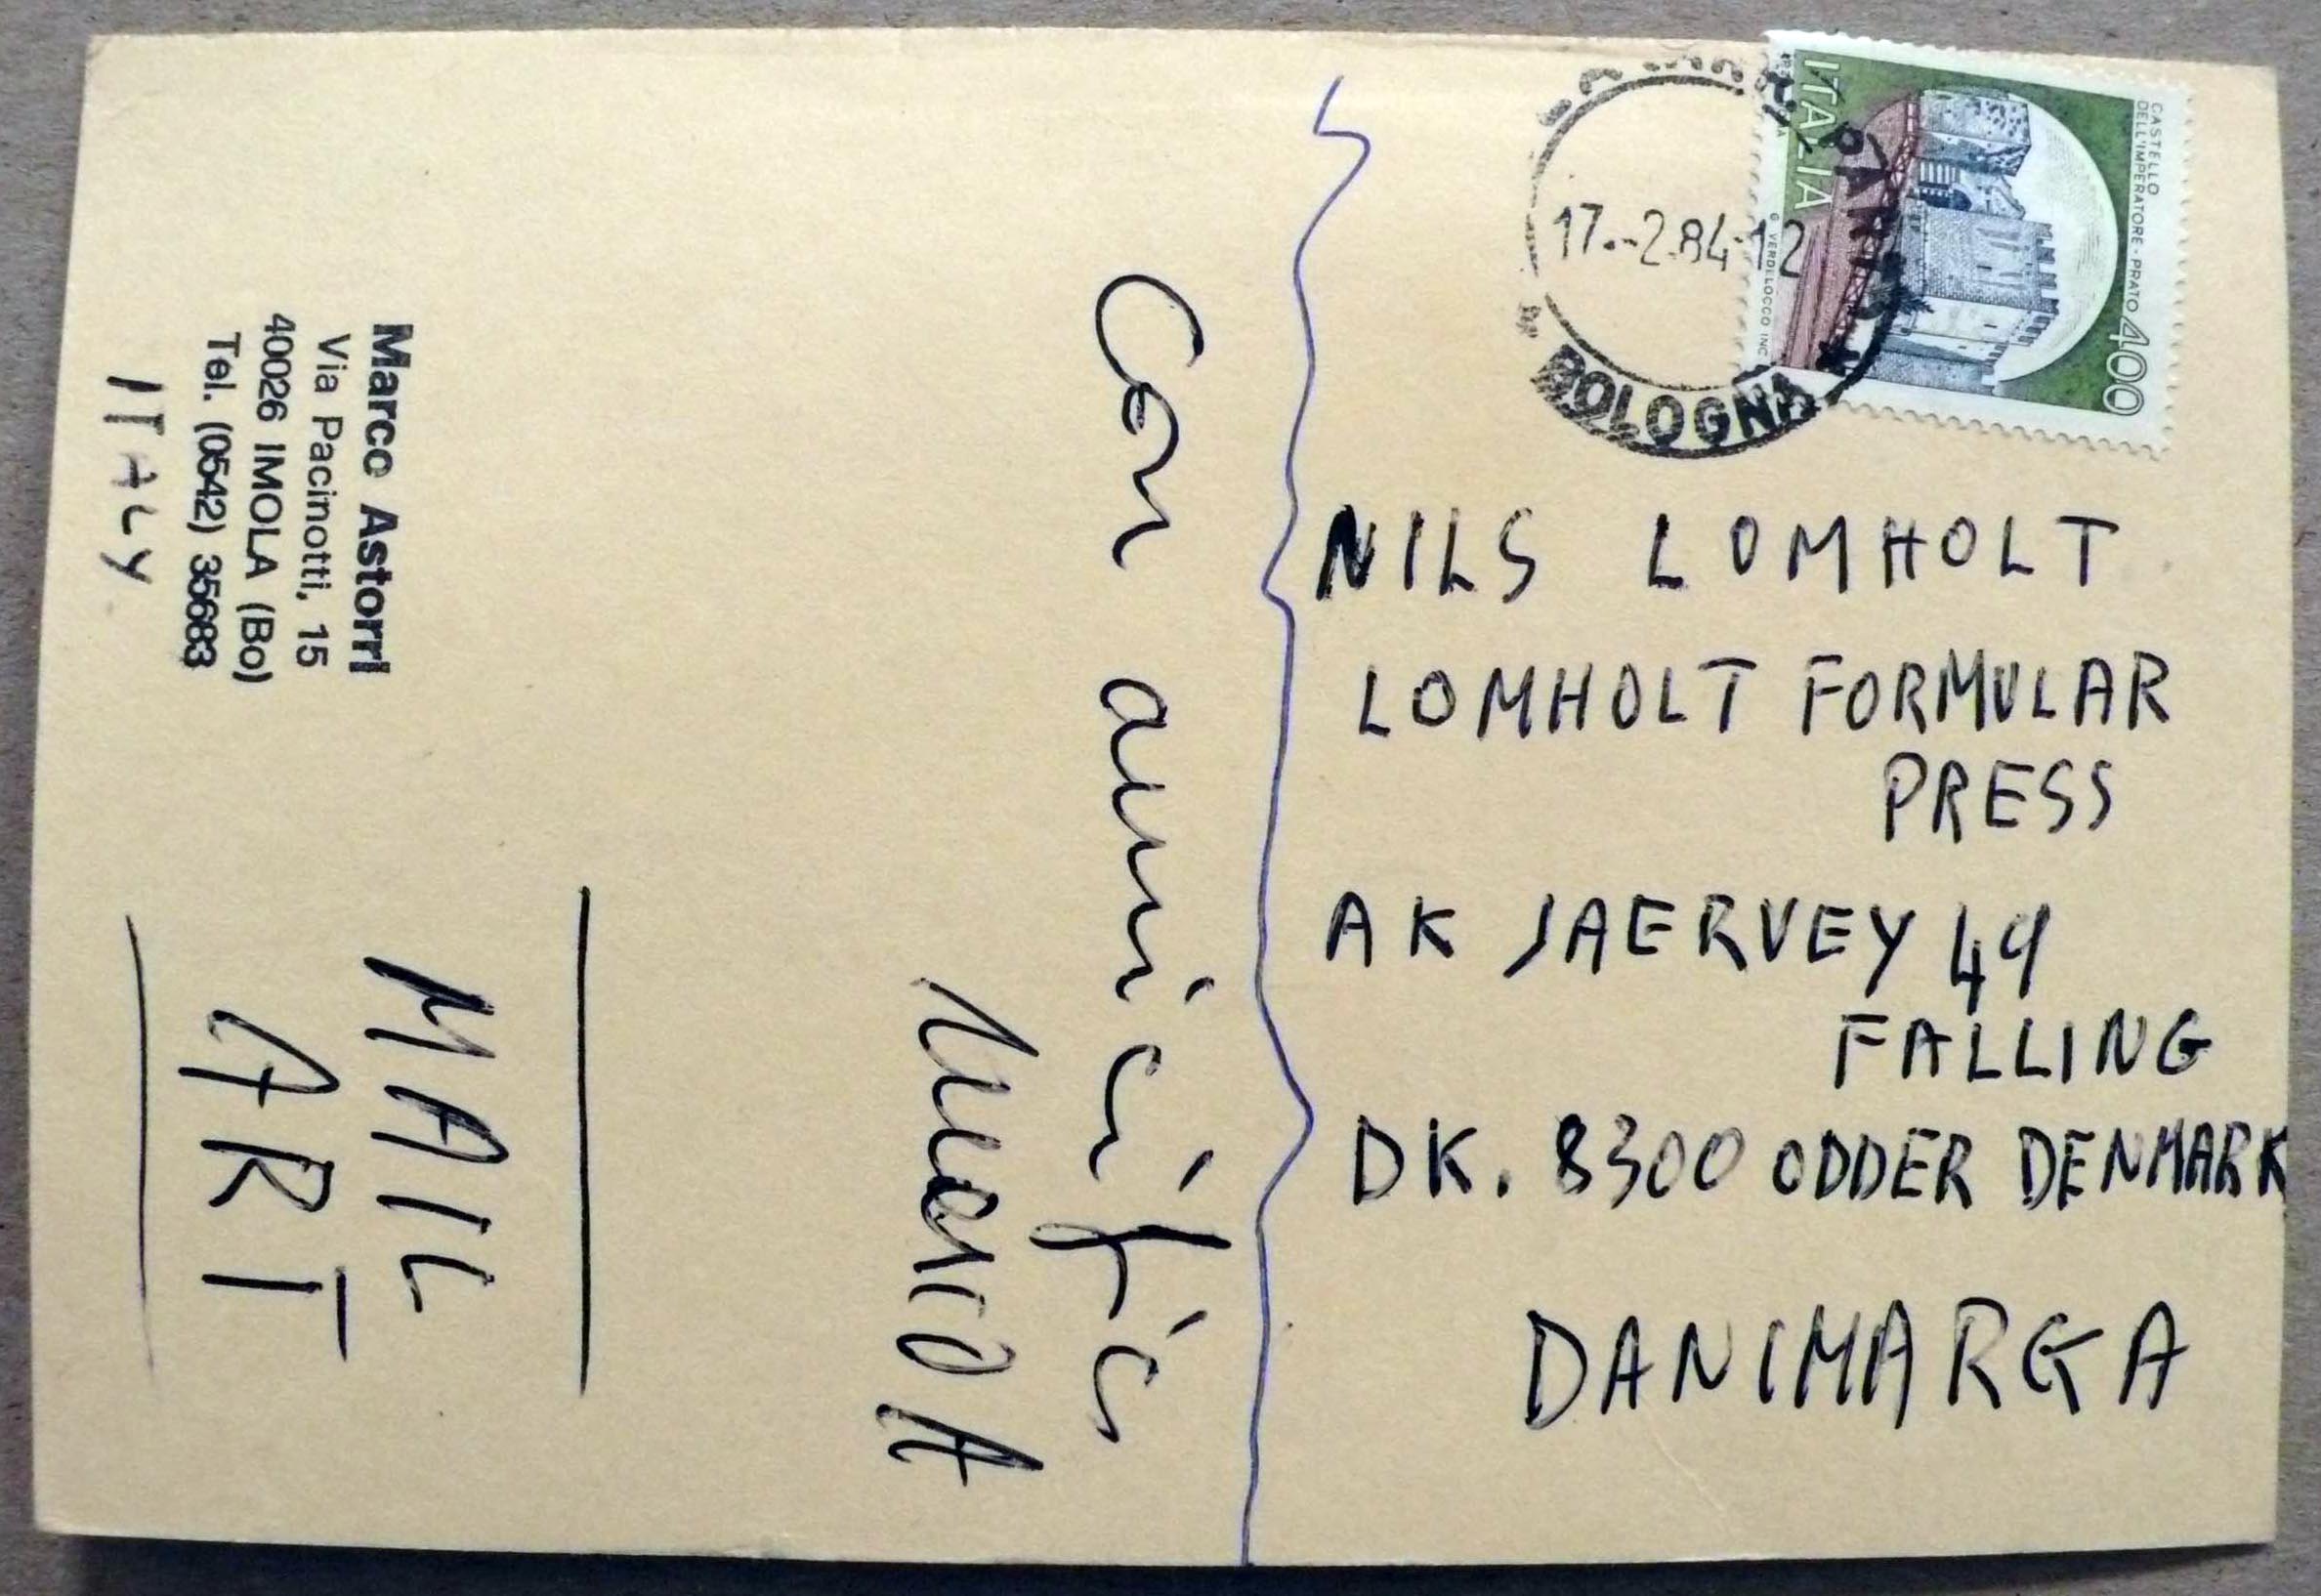 Marco Astorri
Via Pacinotti, 15
40026 IMOLA (Bo)
Tel. (0542) 35683
ITALY
Con amicizia
MAIL
ART
ITALIA
CASTELLO
DELL'IMPERATORE - PRATO
400
17.-2.84-12
BOLOGNA
NILS LOMHOLT
LOMHOLT FORMULAR
PRESS
AK JAERVEY 49
FALLING
DK. 8300 ODDER DENMARK
DANIMARCA